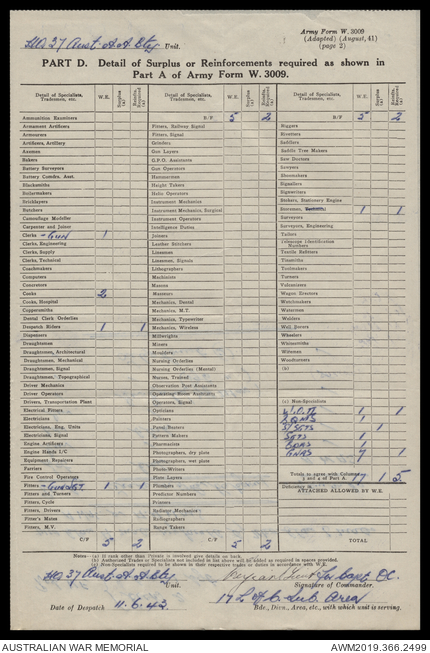 Army Form W. 3009
(Adapted) (August, 41)
(page 2)
HQ 27 Aust. A.A. Bty Unit.
PART D. Detail of Surplus or Reinforcements required as shown in
Part A of Army Form W. 3009.
Detail of Specialists, Tradesmen, etc. W.E. Surplus (a) Reinfts. Required (a)
Ammunition Examiners
Armament Artificers
Armourers
Artificers, Artillery
Axemen
Bakers
Battery Surveyors
Battery Comdrs. Asst.
Blacksmiths
Boilermakers
Bricklayers
Butchers
Camouflage Modeller
Carpenter and Joiner
Clerks - GUN 1
Clerks, Engineering
Clerks, Supply
Clerks, Technical
Coachmakers
Computers
Concreters
Cooks 2
Cooks, Hospital
Coppersmiths
Dental Clerk Orderlies
Despatch Riders 1 1
Dispensers
Draughtsmen
Draughtsmen, Architectural
Draughtsmen, Mechanical
Draughtsmen, Signal
Draughtsmen, Topographical
Driver Mechanics
Driver Operators
Drivers, Transportation Plant
Electrical Fitters
Electricians
Electricians, Eng. Units
Electricians, Signal
Engine Artificers
Engine Hands I/C
Equipment Repairers
Farriers
Fire Control Operators
Fitters 1 1
Fitters and Turners
Fitters, Cycle
Fitters, Drivers
Fitter's Mates
Fitters, M.V.
C/F 5 2
Detail of Specialists, Tradesmen, etc. W.E. Surplus (a) Reinfts. Required (a)
B/F 5 2
Fitters, Railway Signal
Fitters, Signal
Grinders
Gun Layers
G.P.O. Assistants
Gun Operators
Hammerman
Height Takers
Helio Operators
Instrument Mechanics
Instrument Mechanics, Surgical
Intelligence Duties
Joiners
Leather Stitchers
Linesmen
Linesmen, Signals
Lithographers
Machinists
Masons
Masseurs
Mechanics, Dental
Mechanics, M.T.
Mechanics, Typewriter
Mechanics, Wireless
Millwrights
Miners
Moulders
Nursing Orderlies
Nursing Orderlies (Mental)
Nurses, Trained
Observation Post Assistants
Operating Room Assistants
Operators, Signal
Opticians
Painters
Panel Beaters
Pattern Makers
Pharmacists
Photographers, dry plate
Photographers, wet plate
Photo-Writers
Plate Layers
Plumbers
Predictor Numbers
Printers
Radiator Mechanics
Radiographers
Range Takers
C/F 5 2
Detail of Specialists, Tradesmen, etc. W.E. Surplus (a) Reinfts. Required (a)
B/F 5 2
Riggers
Rivetters
Saddlers
Saddle Tree Makers
Saw Doctors
Sawyers
Shoemakers
Signallers
Signwriters
Stokers, Stationary Engine
Storemen, 1 1
Surveyors
Surveyors, Engineering
Tailors
Telescope Identification Numbers
Textile Refitters
Tinsmiths
Toolmakers
Turners
Vulcanizers
Wagon Erectors
Watchmakers
Waterman
Welders
Well Borers
Wheelers
Whitesmiths
Wiremen
Woodturners
(b)
(c) Non-Specialists
1 1
1
S/SGTS 1
SGTS 1
BDRS 1
GNRS 7 1
Totals to agree with Columns 3 and 4 of Part A. 17 1 5
Deficiency in
ATTACHED ALLOWED BY W.E.
TOTAL
Notes—(a) If rank other than Private is involved give details on back.
(b) Authorized Trades or Specialists not included in list above will be added as required in spaces provided.
(c) Non-Specialists required to be shown in their respective trades or duties in accordance with W.E.
HQ 27 Aust. A.A. Bty Unit.
Capt OC.
Signature of Commander.
Date of Despatch 11.6.42
17 L of C Sub. Area
Bde., Divn., Area, etc., with which unit is serving.
AUSTRALIAN WAR MEMORIAL
AWM2019.366.2499